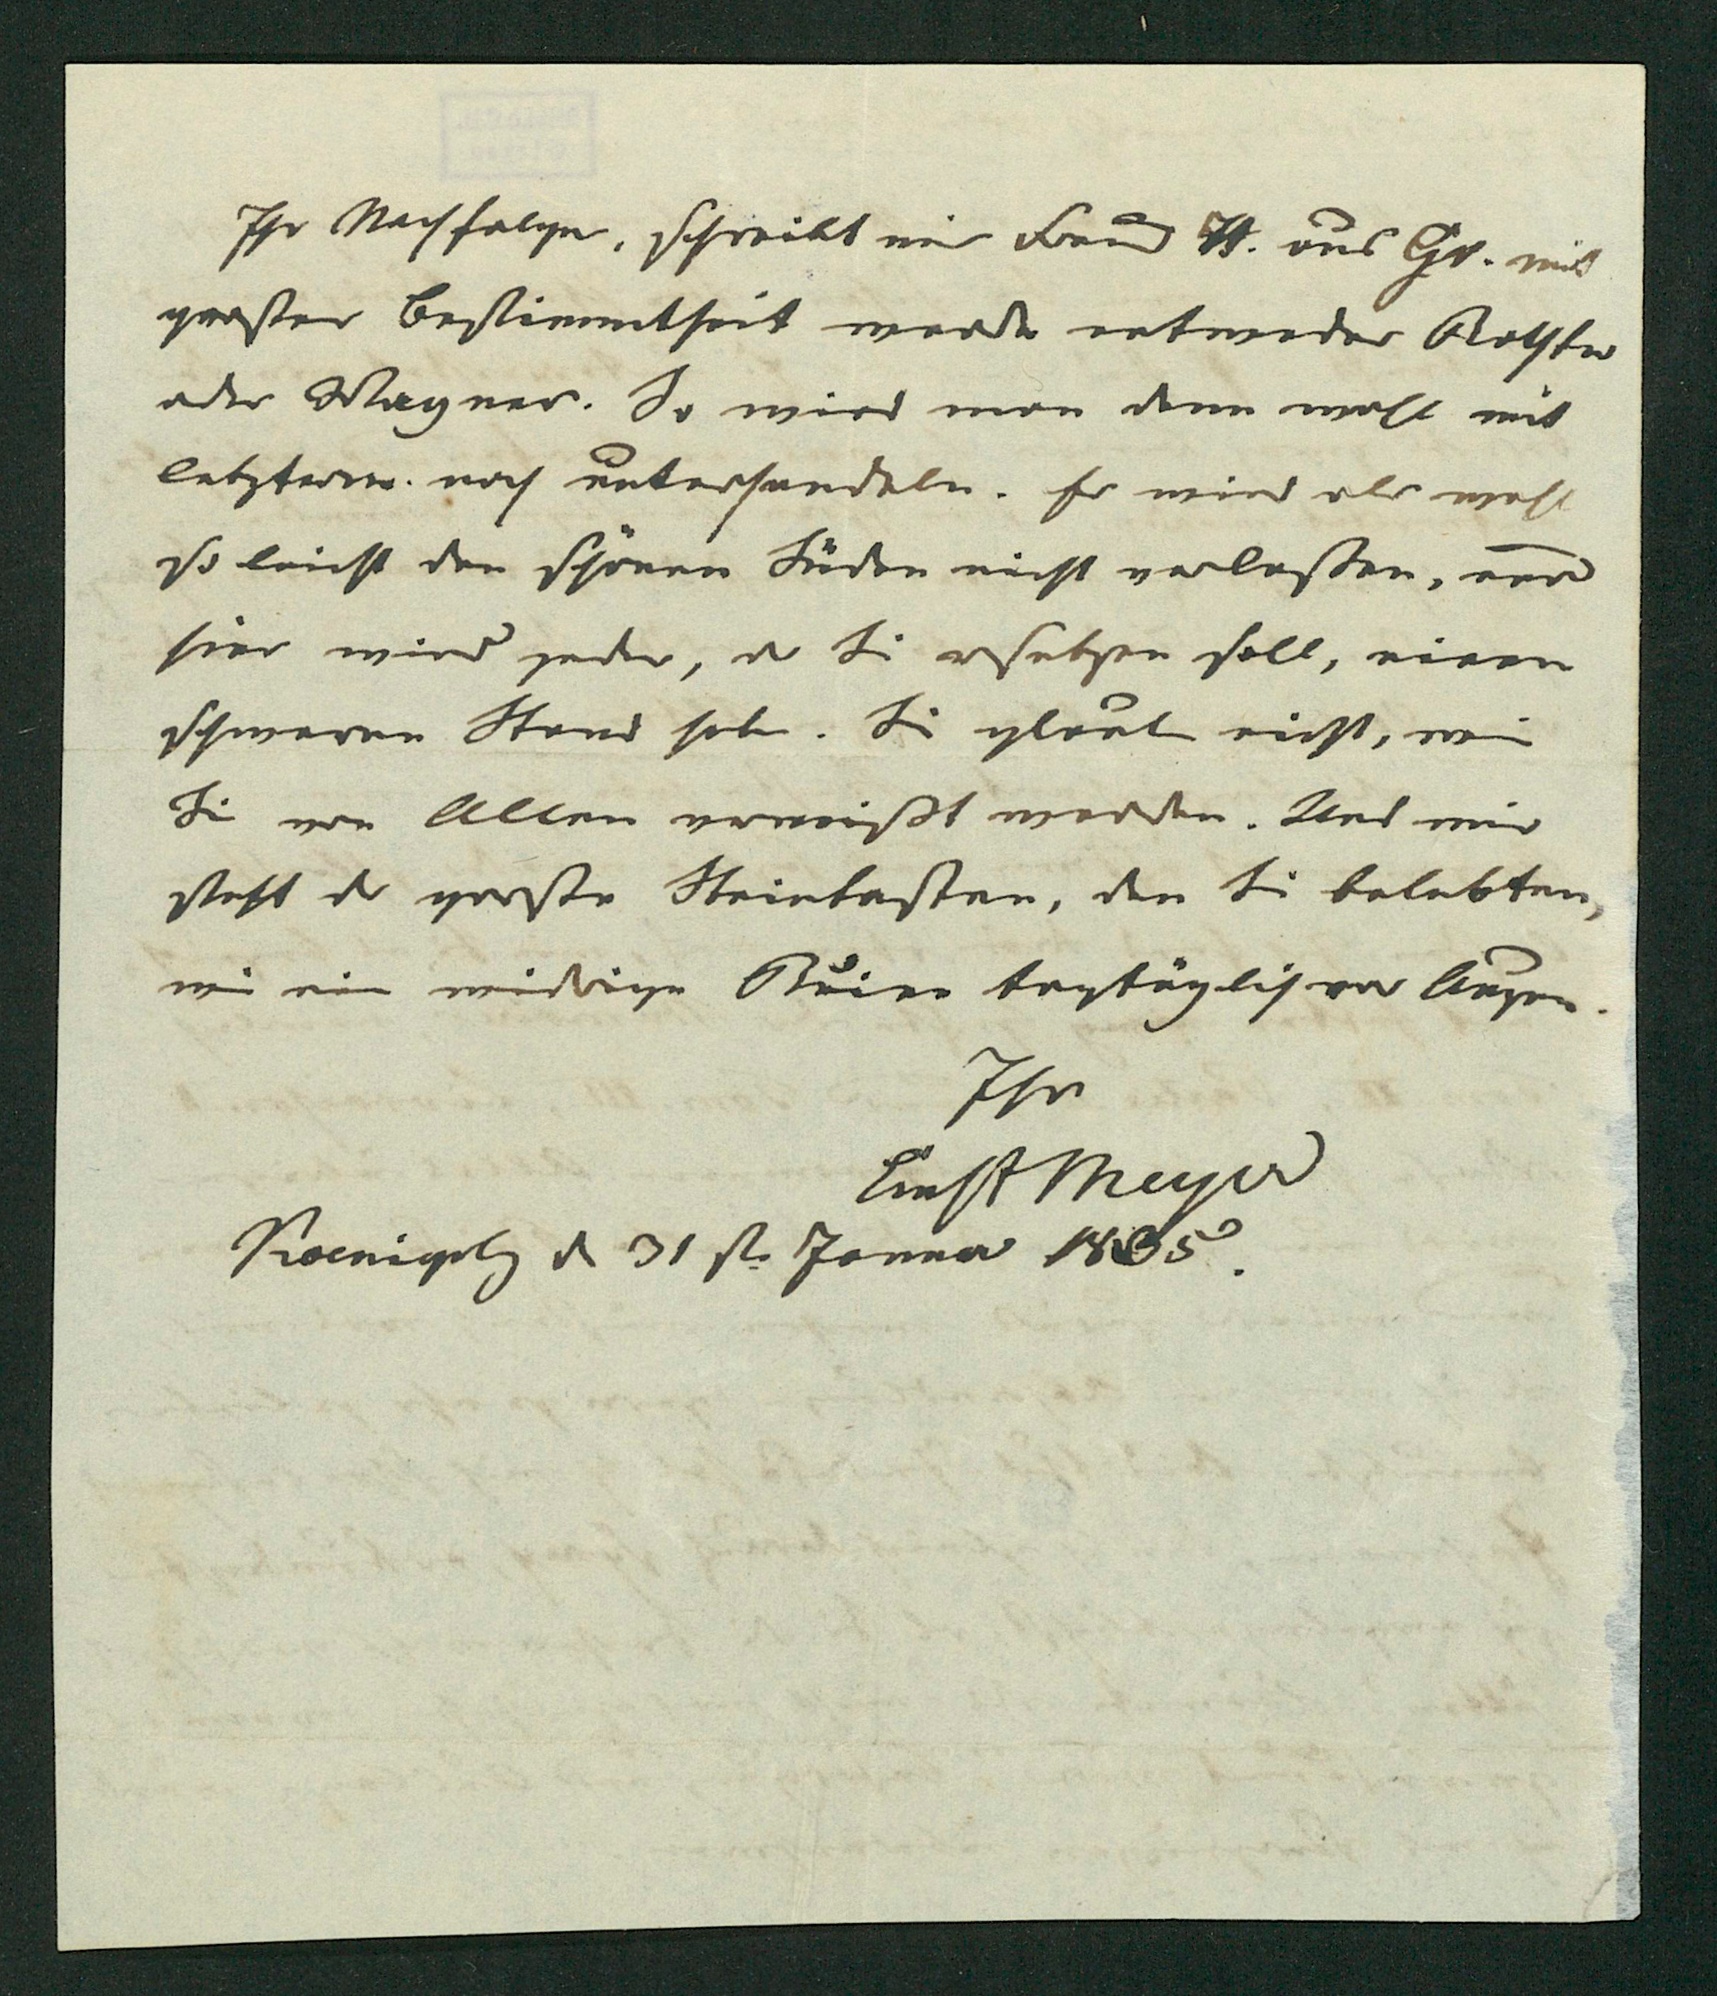 Ihr Nachfolger, schreibt mir Freund H. aus Gr. mit
großter Bestimmtheit werde entweder Rathke
oder Wagner. So wird man denn wohl mit
letzterm. noch unterhandeln. Er wird aber wohl
so leicht den schönen Süden nicht verlaßen, und
hier wird jeder, der Sie ersetzen soll, einen
schweren Stand haben. Sie glauben nicht, wie
Sie von Allen vermißt werden. Und mir
steht der große Steinkasten, den Sie belebten,
wie eine widrige Ruine tagtäglich vor Augen.
Ihr
Ernst Meyer
Koenigsbg d 31 st. Januar 1835.